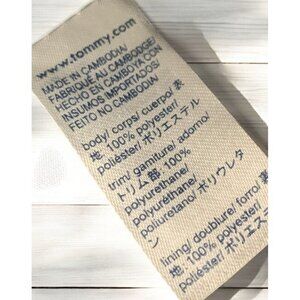 www.tommy.com
MADE IN CAMBODIA/
FABRIQUÉ AU CAMBODGE/
HECHO EN CAMBOYA CON
INSUMOS IMPORTADOS/
FEITO NO CAMBODIA/
body/ corps/ cuerpo/ 表
地. 100% polyester/
poliéster/ ポリエステル
trim/ garniture/ adorno/
トリム部. 100%
polyurethane/
polyuréthane/
poliuretano/ ポリウレタ
ン
lining/ doublure/ forro/ 裏
地. 100% polyester/
poliéster/ ポリエステル